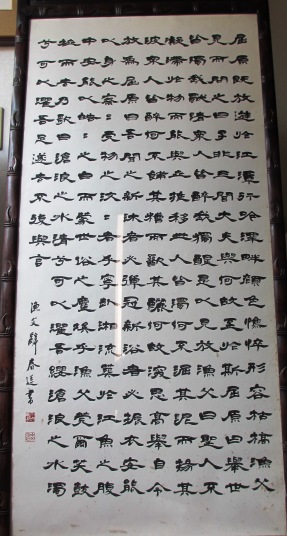 屈原既放遊於江潭行吟澤畔顏色憔悴形容枯槁漁父
見而問之曰子非三閭大夫與何故至於斯屈原曰舉世
皆濁我獨清衆人皆醉我獨醒是以見放漁父曰聖人不
凝滯於物而能與世推移世人皆濁何不淈其泥而揚其
波衆人皆醉何不餔其糟而歠其醨何故深思高舉自令
放為屈原曰吾聞之新沐者必彈冠新浴者必振衣安能
以身之察察受物之汶汶者乎寧赴湘流葬於江魚之腹
中安能以皓皓之白而蒙世俗之塵埃乎漁父莞爾而笑鼓
枻而去乃歌曰滄浪之水清兮可以濯吾纓滄浪之水濁
兮可以濯吾足遂去不復與言
漁父辭 春 書